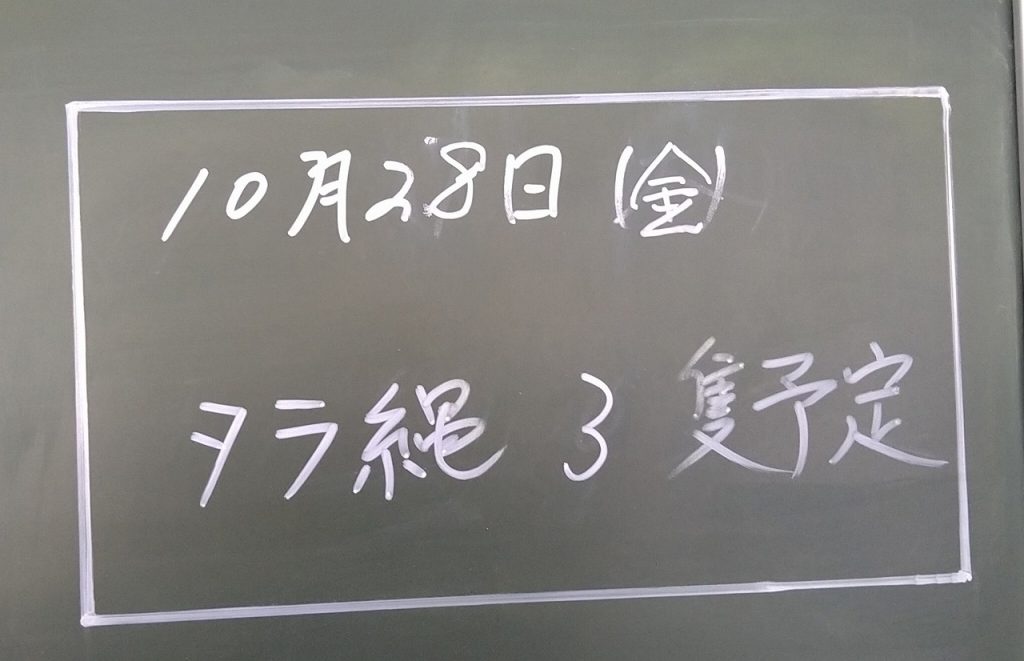 10月28日(金)
タラ縄 3 隻予定